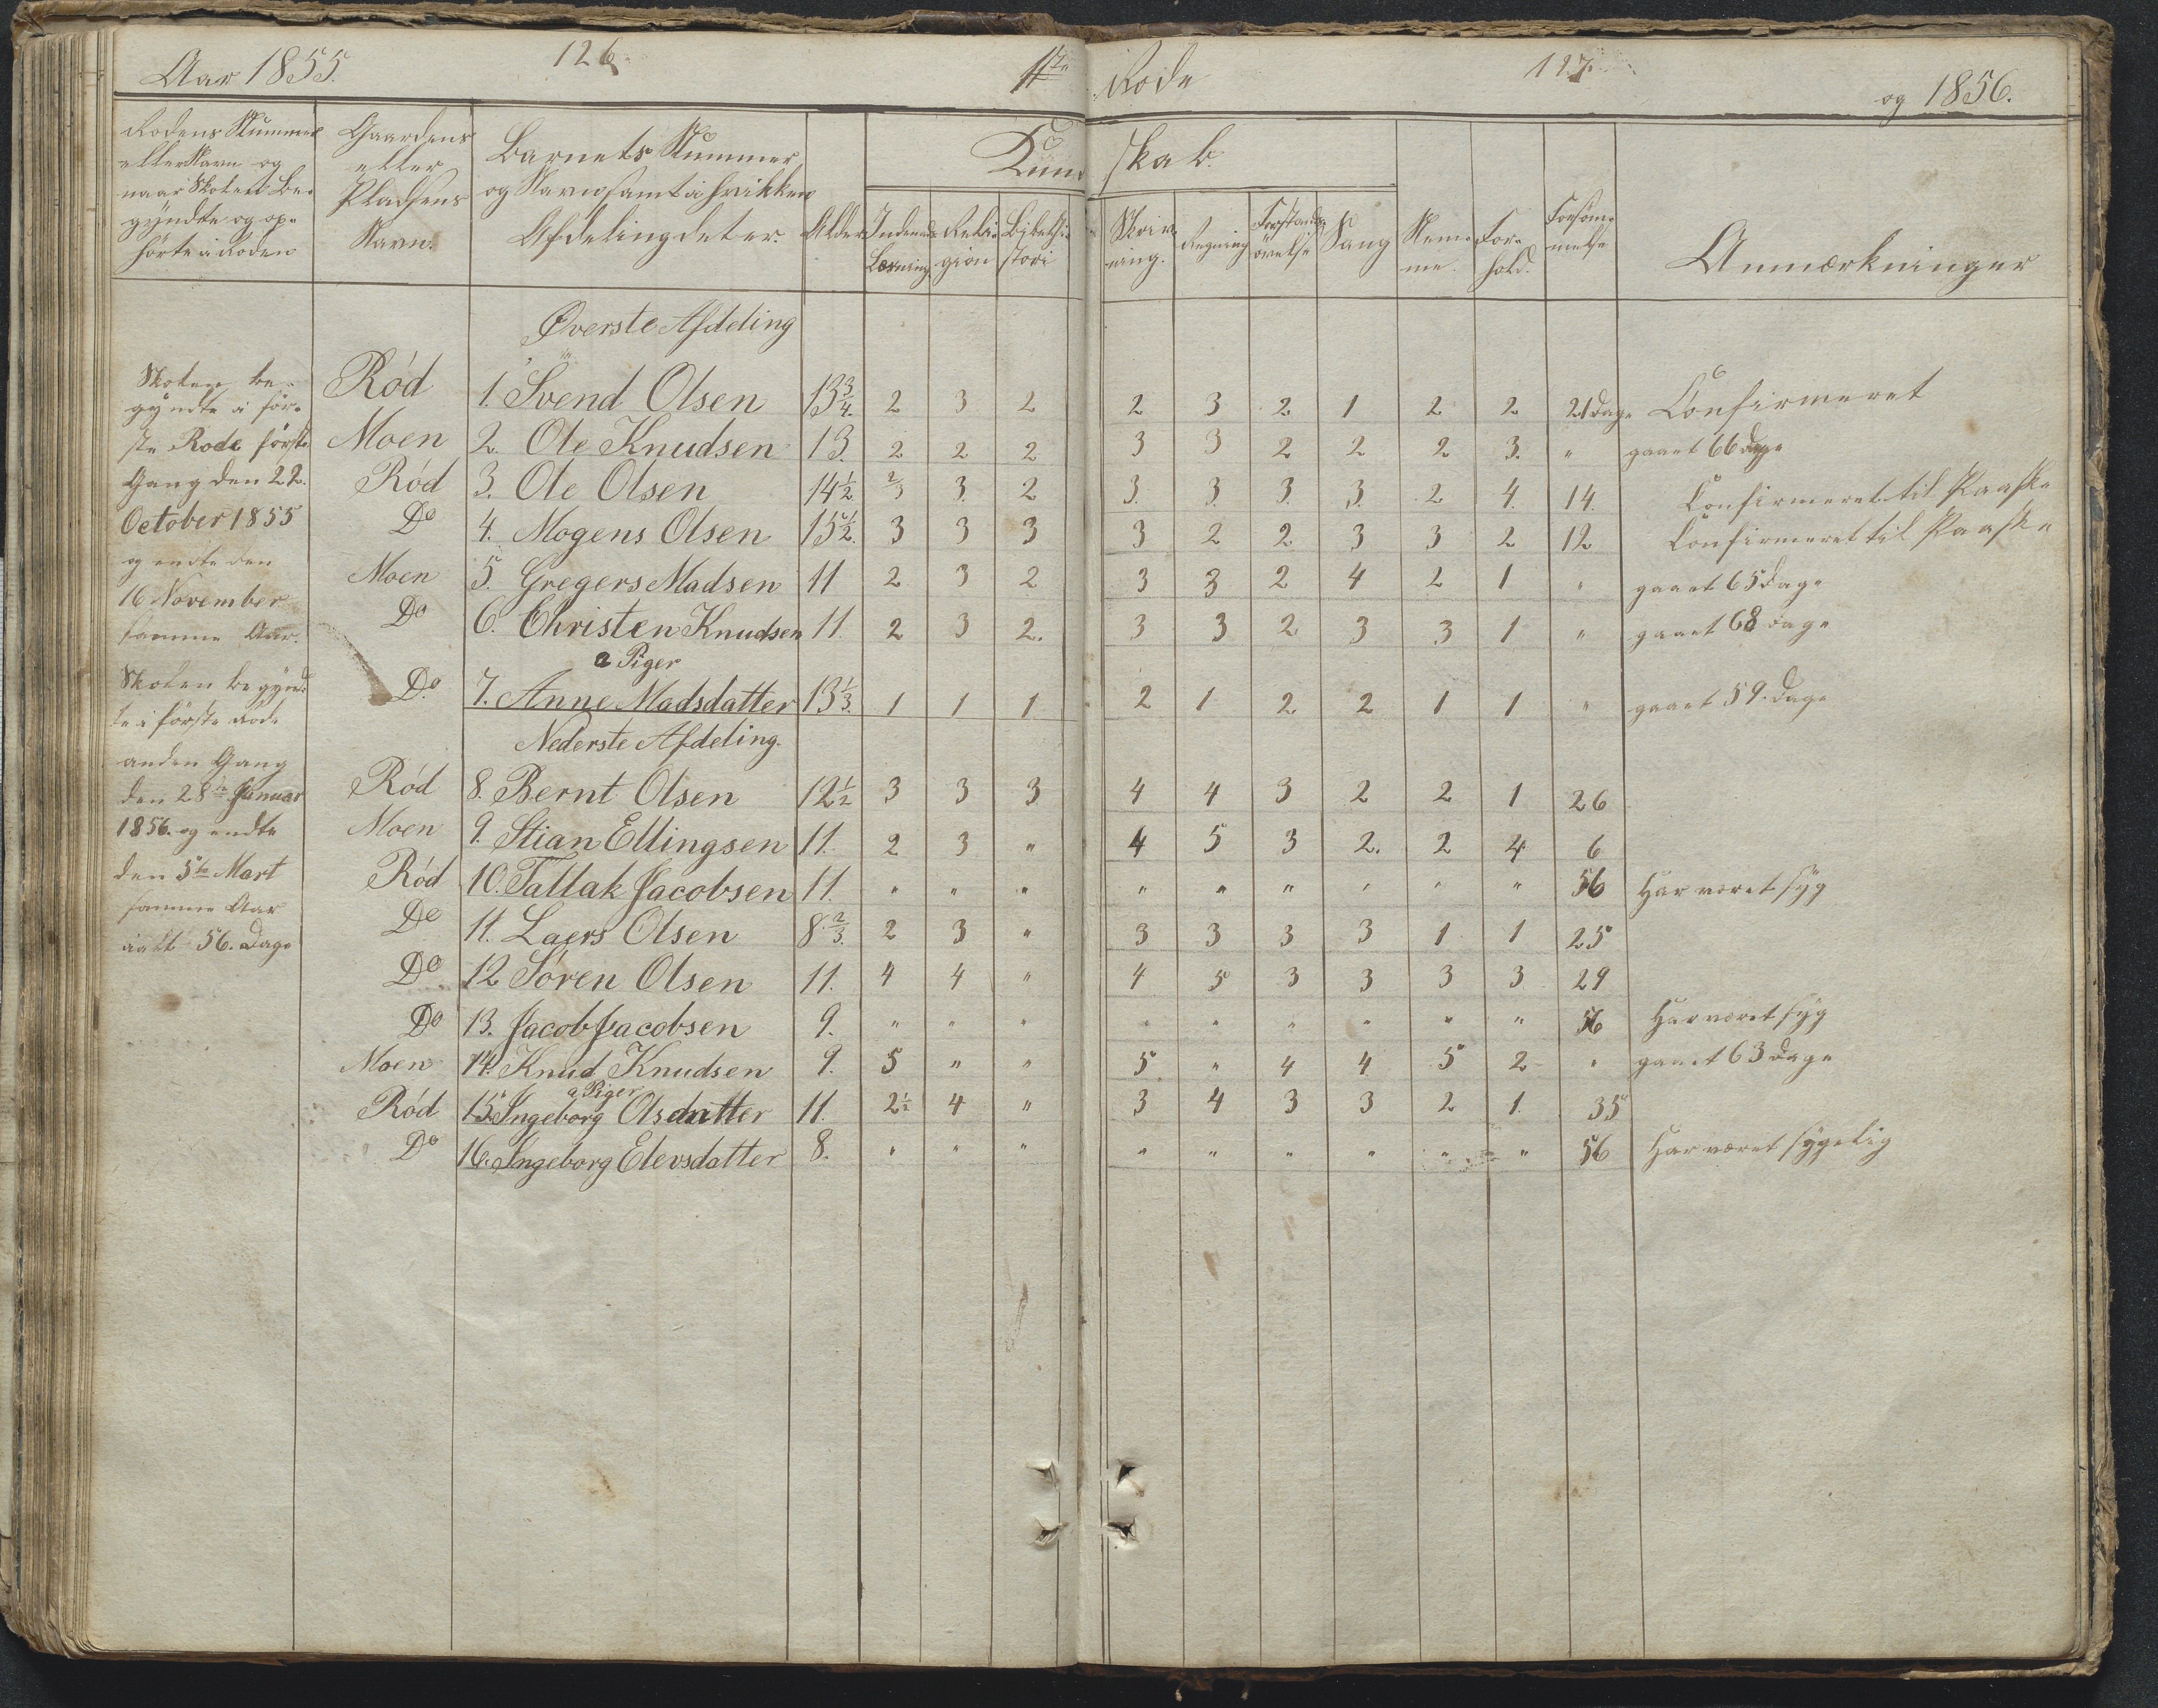 Aar 1855. 126. 1ste Rode 127. og 1856.
Rodens Nummer
eller Navn og
naar Skolen be-
gyndte og op-
hörte i Roden
Gaardens
eller
Pladsens
Navn.
Barnets Nummer
og Navn samt i hvilken
Afdeling det er.
Alder
Kundskab.
Indenads
Læsning
Reli-
gion
Bibelhi-
stori
Skriv-
ning.
Regning
Forstands-
övelse
Sang
Nem-
me.
For-
hold.
Forsöm-
melse
Anmærkninger
Skolen be-
gyndte i för-
ste Rode förste
Gang den 22.
October 1855
og endte den
16 November
samme Aar.
Skolen begynd-
te i förste Rode
anden Gang
den 28de Januar
1856. og endte
den 5te Mart
samme Aar
i alt 56. Dage
Øverste Afdeling
Röd 1. Svend Olsen 13 3/4. 2 3 2 2 3 2 1 2 2 21 Dage Confirmeret
Moen 2. Ole Knudsen 13. 2 2 2 3 3 2 2 2 3. " gaaet 66 Dage
Röd 3. Ole Olsen 14 1/2 2/3 3. 2 3. 3 3 3. 2 4. 14. Confirmeret til Paaske
Do 4. Mogens Olsen 15 1/2. 3 3 3 3 2 2 3 3 2 12 Confirmeret til Paaske
Moen 5. Gregers Madsen 11 2 3 2 3 3 2 4 2 1 " gaaet 65 Dage
Do 6. Christen Knudsen 11. 2 3 2. 3 3 2 3 3 1 " gaaet 68 Dage
a Piger
Do. 7. Anne Madsdatter 13 1/3. 1 1 1 2 1 2 2 1 1 " gaaet 59. Dage
Nederste Afdeling.
Röd 8. Bernt Olsen 12 1/2 3 3 3 4 4 3 2 2 1 26
Moen 9. Stian Ellingsen 11. 2 3 " 4 5 3 2. 2 4 6
Röd 10. Tallak Jacobsen 11. " " " " " " " " " 56 Har været syg
Do 11. Laers Olsen 8 2/3. 2 3 " 3 3 3 3 1 1 25
Do 12 Sören Olsen 11. 4 4 " 4 5 3 3 3 3 29
Do 13. Jacob Jacobsen 9. " " " " " " " " " 56 Har været syg
Moen 14. Knud Knudsen 9. 5 " " 5 " 4 4 5 2 " gaaet 63 Dage
a Piger
Röd 15. Ingeborg Olsdatter 11. 2 1/2 4 " 3 4 3 3 2 1. 35
Do 16. Ingeborg Elevsdatter 8. " " " " " " " " " 56 Har været sygelig